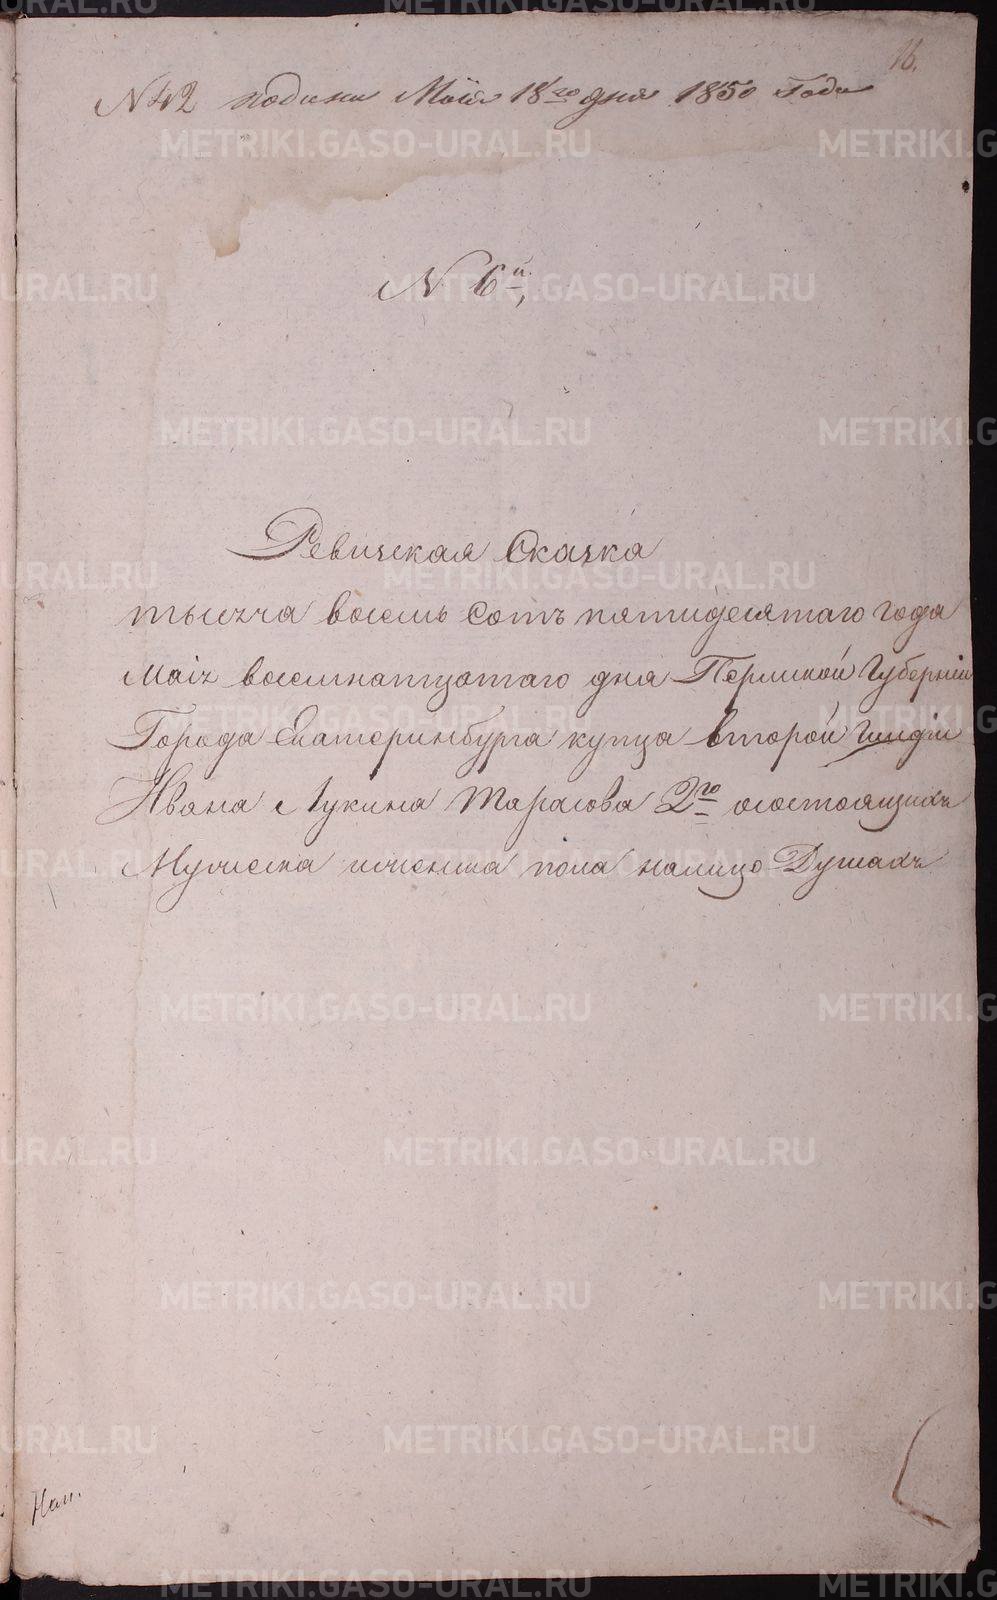 16.
N 42 подана Маiя 18го дня 1850 Года
N 6й,
Ревизская Сказка
тысяча восемь сотъ пятидесятаго года
Маiя восемнатцатаго дня Пермской Губернiи
Города Екатеринбурга купца второй Гильдiи
Ивана Лукина Тарасова 2го осостоящихъ
Мужеска иженска пола налицо Душахъ
METRIKI.GASO-URAL.RU